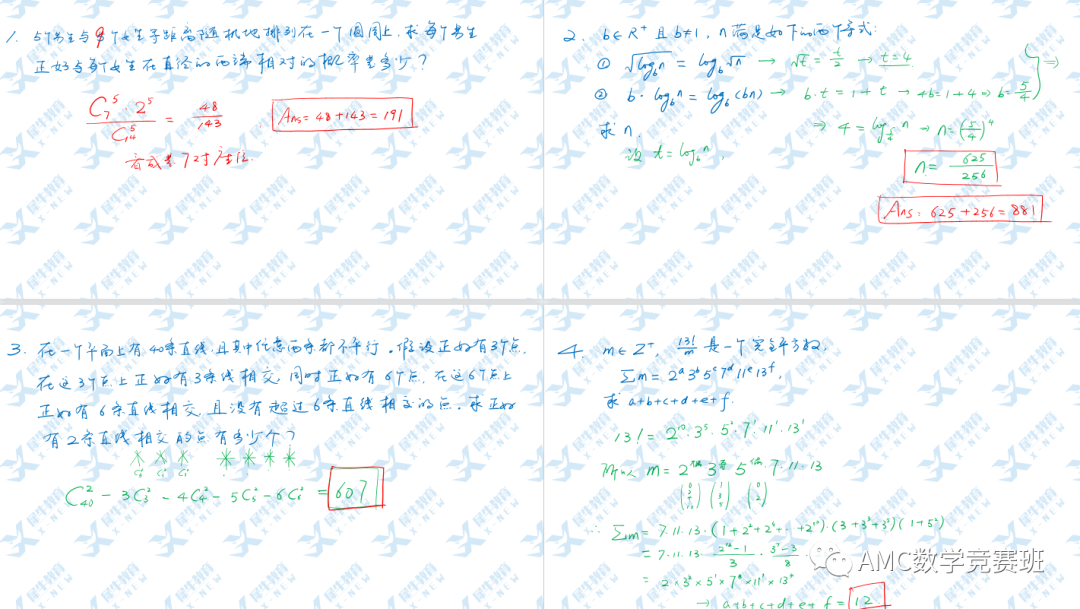 1. 5个男生与9个女生等距离随机地排列在一个圆周上,求每个男生
正好与每个女生在直径的两端相对的概率是多少?
C₇⁵ 2⁵ / C₁₄⁵ = 48/143
Ans = 48+143 = 191
看成是7对座位.
2. b∈R⁺ 且 b≠1, n满足如下的两个等式:
① √log_b n = log_b √n → √t = t/2 → t=4
② b·log_b n = log_b(bn) → b·t = 1+t → 4b=1+4 ⇒ b=5/4
求n.
⇒ 4 = log_{5/4} n → n=(5/4)⁴
设 t = log_b n,
n = 625/256
Ans: 625+256=881
3. 在一个平面上有40条直线,且其中任意两条都不平行。假设正好有3个点,
在这3个点上正好有3条线相交,同时正好有
正好有6条直线相交,且没有超过6条直线相交的点。求正好
有2条直线相交的点有多少个?
C₄₀² − 3C₃² − 4C₄² − 5C₅² − 6C₆² = 607
4. m∈Z⁺, 13!/m 是一个完全平方数,
∑m = 2ᵃ3ᵇ5ᶜ7ᵈ11ᵉ13ᶠ,
求 a+b+c+d+e+f.
13! = 2¹⁰·3⁵·5²·7¹·11¹·13¹
所以 m = 2^偶 3^奇 5^偶 7·11·13
∴ ∑m = 7·11·13·(1+2²+2⁴+…+2¹⁰)·(3+3³+3⁵)(1+5²)
= 2×3²×5¹×7⁴×11¹×13⁴
→ a+b+c+d+e+f = 12
AMC数学竞赛班
犀牛教育
X-NEW